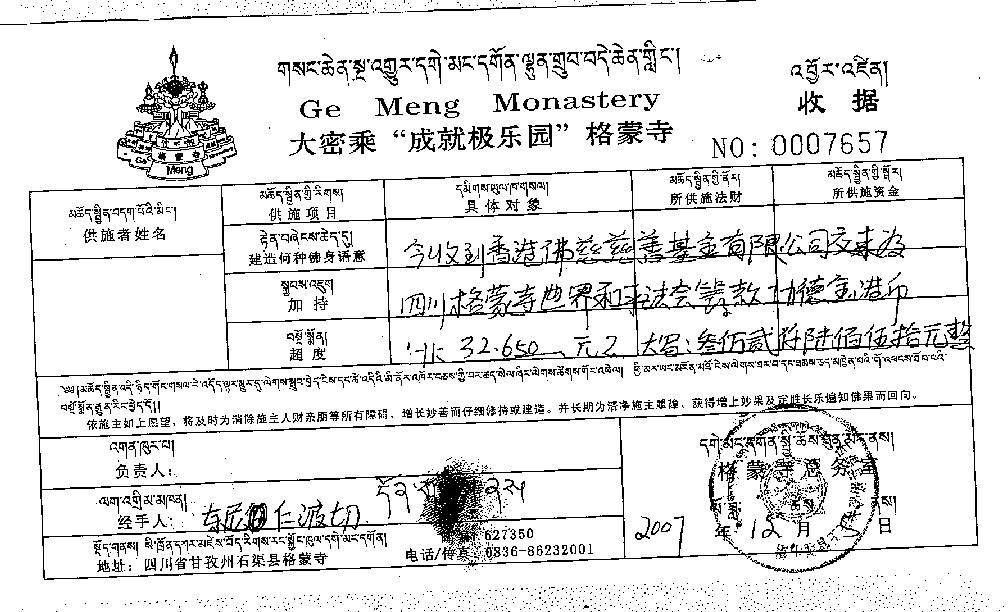 གསང་ཆེན་སྔ་འགྱུར་དགེ་མང་དགོན་ལྷུན་གྲུབ་བདེ་ཆེན་གླིང་།
འབྱོར་འཛིན།
Ge Meng Monastery
收 据
大密乘“成就极乐园”格蒙寺
NO: 0007657
格蒙寺
Ge Meng
མཆོད་སྦྱིན་བདག་པོའི་མིང་།
供施者姓名
མཆོད་སྦྱིན་གྱི་རིགས།
供施项目
དམིགས་ཡུལ་ཁ་གསལ།
具体对象
མཆོད་སྦྱིན་གྱི་ནོར།
所供施法财
མཆོད་སྦྱིན་གྱི་སྒོར།
所供施资金
རྟེན་བཞེངས་ཆེད་དུ།
建造何种佛身语意
今收到香港佛慈慈善基金有限公司交来为
སྐྱབས་འཇུག
加 持
四川格蒙寺世界和平法会善款功德金港币
བསྔོ་སྨོན།
超 度
32.650 元 大写:叁仟贰仟陆佰伍拾元整
依施主如上愿望,将及时为消除施主人财亲顾等所有障碍、增长妙善而仔细修持或建造。并长期为清净施主罪障、获得增上妙果及定胜长乐遍知佛果而回向。
འགན་ཁུར་པ།
负责人:
ལག་འགྲི་མ་མཁན།
经手人: 仁波切
སྡོད་གནས། སི་ཁྲོན་དཀར་མཛེས་བོད་རིགས་རང་སྐྱོང་ཁུལ་དགེ་མང་དགོན།
地址:四川省甘孜州石渠县格蒙寺
627350
电话/传真:0836-86232001
格蒙寺总务室
2007 年 12 月 5 日